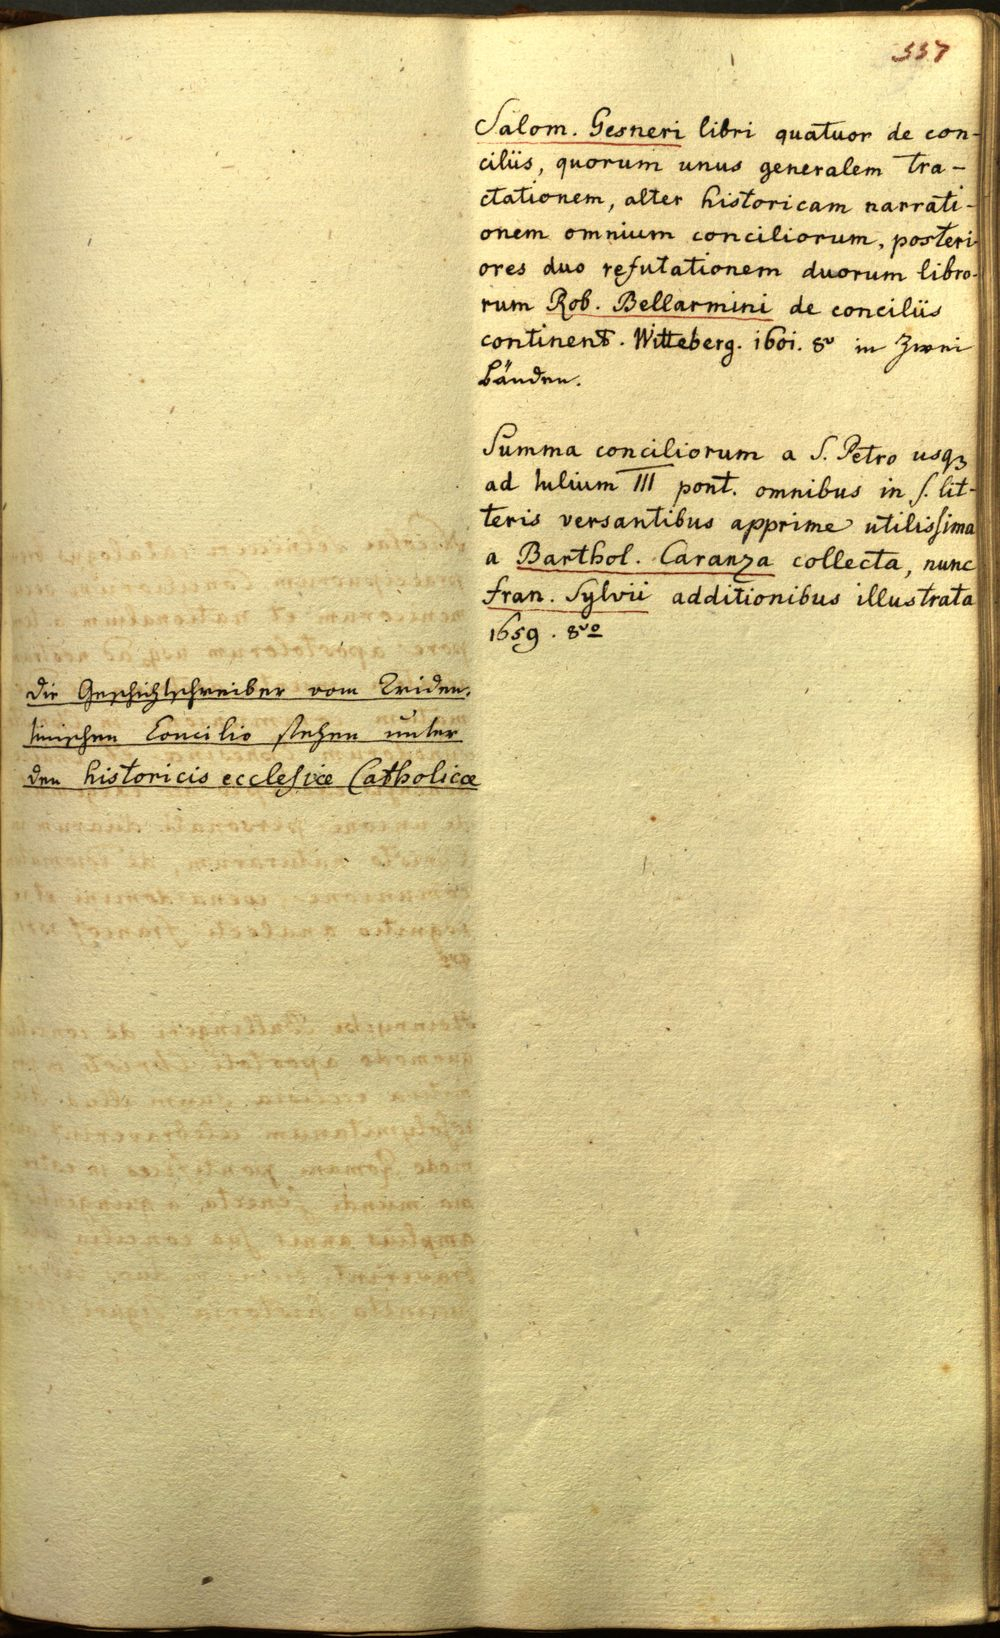 337
Salom. Gesneri libri quatuor de con-
ciliis, quorum unus generalem tra-
ctationem, alter historicam narrati-
onem omnium conciliorum, posteri-
ores duo refutationem duorum libro-
rum Rob. Bellarmini de conciliis
continent. Witteberg. 1601. 8º in Zwei
Bänden.
Summa conciliorum a S. Petro usqꝫ
ad Iulium III pont. omnibus in s. lit-
teris versantibus apprime utilissima
a Barthol. Caranza collecta, nunc
fran. Sylvii additionibus illustrata
1659. 8vo
Die Geschichtschreiber vom Triden-
tinischen Concilio stehen unter
den historicis ecclesiæ Catholicæ